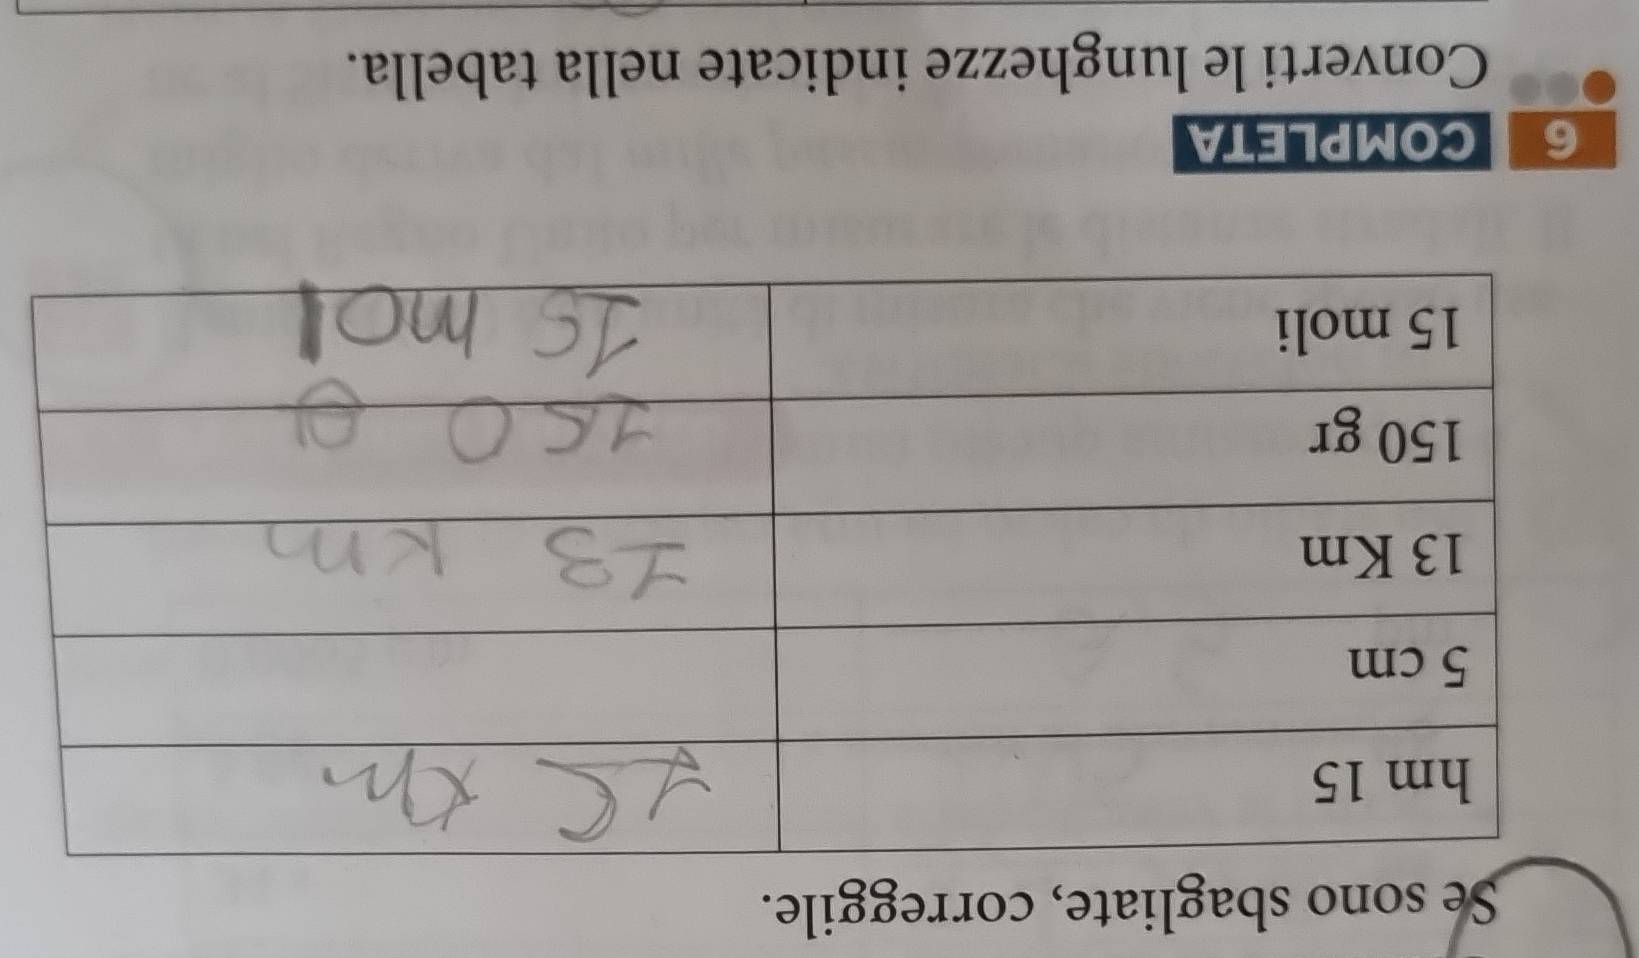 Se sono sbagliate, correggile.
hm 15 15 hm
5 cm
13 Km 13 km
150 gr 150 g
15 moli 15 mol
6 COMPLETA
Converti le lunghezze indicate nella tabella.